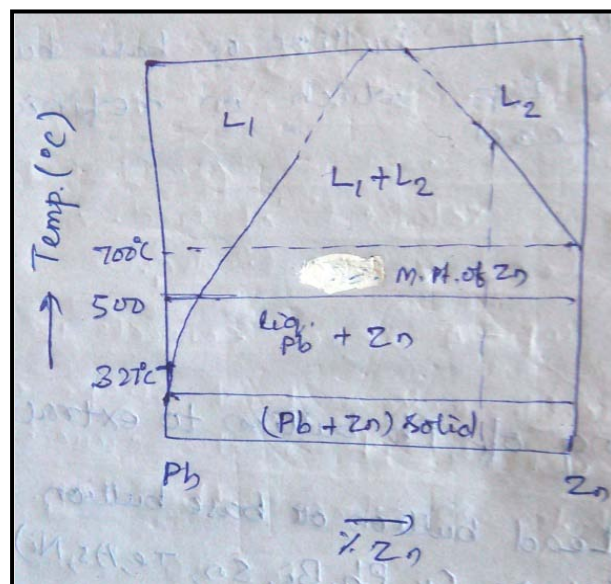 L₁
L₂
L₁ + L₂
Temp. (°C)
700°C
m. pt. of Zn
500
Liq.
Pb + Zn
327°C
(Pb + Zn) solid
Pb
Zn
% Zn